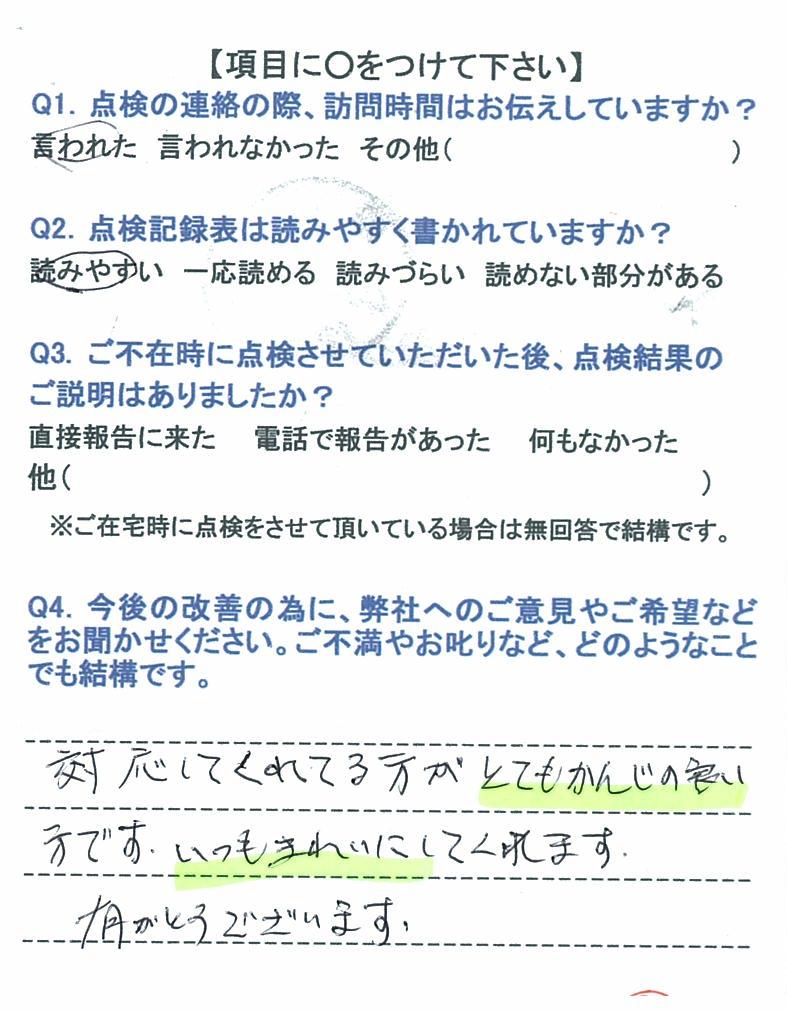 【項目に〇をつけて下さい】
Q1. 点検の連絡の際、訪問時間はお伝えしていますか？
言われた 言われなかった その他( )
Q2. 点検記録表は読みやすく書かれていますか？
読みやすい 一応読める 読みづらい 読めない部分がある
Q3. ご不在時に点検させていただいた後、点検結果の
ご説明はありましたか？
直接報告に来た 電話で報告があった 何もなかった
他( )
※ご在宅時に点検をさせて頂いている場合は無回答で結構です。
Q4. 今後の改善の為に、弊社へのご意見やご希望など
をお聞かせください。ご不満やお叱りなど、どのようなこと
でも結構です。
対応してくれてる方がとてもかんじの良い
方です。いつもきれいにしてくれます。
有がとうございます。